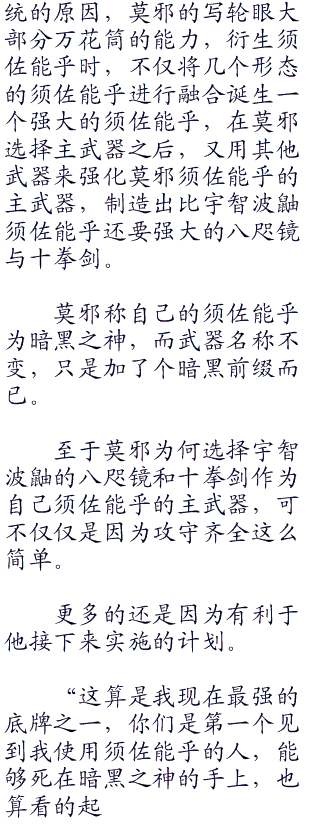 统的原因，莫邪的写轮眼大
部分万花筒的能力，衍生须
佐能乎时，不仅将几个形态
的须佐能乎进行融合诞生一
个强大的须佐能乎，在莫邪
选择主武器之后，又用其他
武器来强化莫邪须佐能乎的
主武器，制造出比宇智波鼬
须佐能乎还要强大的八咫镜
与十拳剑。
莫邪称自己的须佐能乎
为暗黑之神，而武器名称不
变，只是加了个暗黑前缀而
已。
至于莫邪为何选择宇智
波鼬的八咫镜和十拳剑作为
自己须佐能乎的主武器，可
不仅仅是因为攻守齐全这么
简单。
更多的还是因为有利于
他接下来实施的计划。
“这算是我现在最强的
底牌之一，你们是第一个见
到我使用须佐能乎的人，能
够死在暗黑之神的手上，也
算看的起